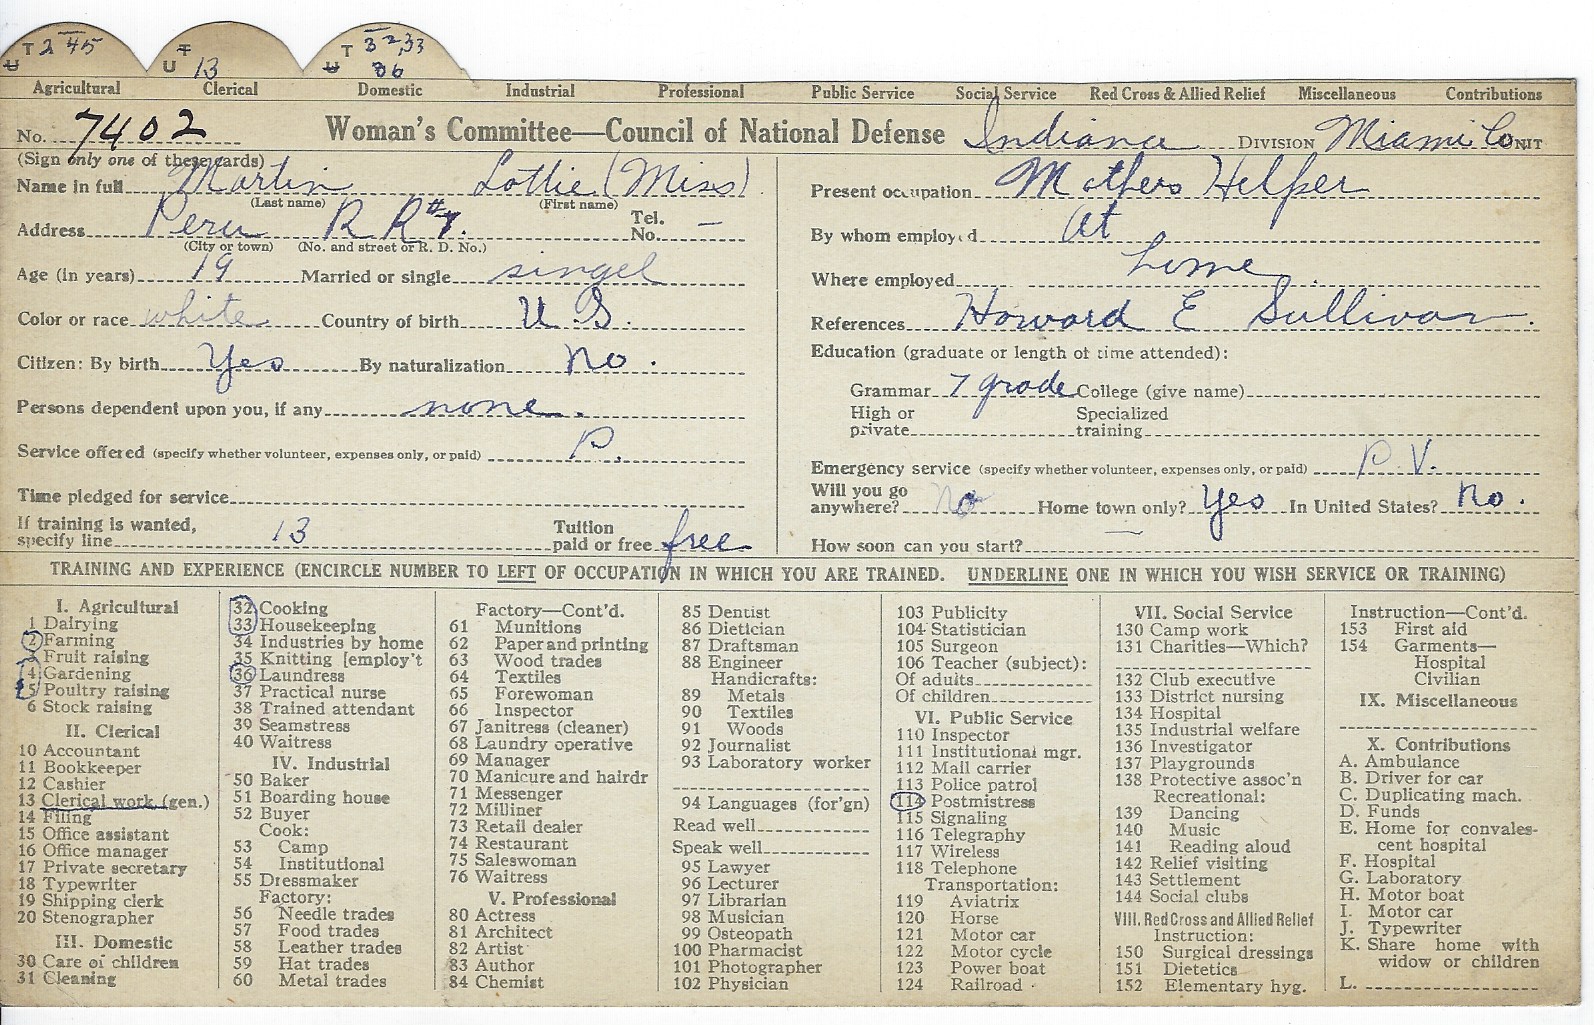 T 2 45 T 13 T 32, 33
U U U 36
Agricultural Clerical Domestic Industrial Professional Public Service Social Service Red Cross & Allied Relief Miscellaneous Contributions
No. 7402 Woman's Committee—Council of National Defense Indiana DIVISION Miami Co UNIT
(Sign only one of these cards)
Name in full Martin Lottie (Miss)
(Last name) (First name)
Address Peru R R# 7. Tel. No. —
(City or town) (No. and street or R. D. No.)
Age (in years) 19 Married or single singel
Color or race white Country of birth U S.
Citizen: By birth Yes By naturalization No.
Persons dependent upon you, if any none.
Service offered (specify whether volunteer, expenses only, or paid) P.
Time pledged for service
If training is wanted,
specify line 13 Tuition paid or free free
Present occupation Mothers Helper
By whom employed At
Where employed home
References Howard E Sullivan.
Education (graduate or length of time attended):
Grammar 7 grade College (give name)
High or private Specialized training
Emergency service (specify whether volunteer, expenses only, or paid) P V.
Will you go anywhere? No Home town only? Yes In United States? No.
How soon can you start? —
TRAINING AND EXPERIENCE (ENCIRCLE NUMBER TO LEFT OF OCCUPATION IN WHICH YOU ARE TRAINED. UNDERLINE ONE IN WHICH YOU WISH SERVICE OR TRAINING)
I. Agricultural
1 Dairying
2 Farming
3 Fruit raising
4 Gardening
5 Poultry raising
6 Stock raising
II. Clerical
10 Accountant
11 Bookkeeper
12 Cashier
13 Clerical work (gen.)
14 Filing
15 Office assistant
16 Office manager
17 Private secretary
18 Typewriter
19 Shipping clerk
20 Stenographer
III. Domestic
30 Care of children
31 Cleaning
32 Cooking
33 Housekeeping
34 Industries by home
35 Knitting [employ't
36 Laundress
37 Practical nurse
38 Trained attendant
39 Seamstress
40 Waitress
IV. Industrial
50 Baker
51 Boarding house
52 Buyer
Cook:
53 Camp
54 Institutional
55 Dressmaker
Factory:
56 Needle trades
57 Food trades
58 Leather trades
59 Hat trades
60 Metal trades
Factory—Cont'd.
61 Munitions
62 Paper and printing
63 Wood trades
64 Textiles
65 Forewoman
66 Inspector
67 Janitress (cleaner)
68 Laundry operative
69 Manager
70 Manicure and hairdr
71 Messenger
72 Milliner
73 Retail dealer
74 Restaurant
75 Saleswoman
76 Waitress
V. Professional
80 Actress
81 Architect
82 Artist
83 Author
84 Chemist
85 Dentist
86 Dietician
87 Draftsman
88 Engineer
Handicrafts:
89 Metals
90 Textiles
91 Woods
92 Journalist
93 Laboratory worker
94 Languages (for'gn)
Read well
Speak well
95 Lawyer
96 Lecturer
97 Librarian
98 Musician
99 Osteopath
100 Pharmacist
101 Photographer
102 Physician
103 Publicity
104 Statistician
105 Surgeon
106 Teacher (subject):
Of adults
Of children
VI. Public Service
110 Inspector
111 Institutional mgr.
112 Mail carrier
113 Police patrol
114 Postmistress
115 Signaling
116 Telegraphy
117 Wireless
118 Telephone
Transportation:
119 Aviatrix
120 Horse
121 Motor car
122 Motor cycle
123 Power boat
124 Railroad
VII. Social Service
130 Camp work
131 Charities—Which?
132 Club executive
133 District nursing
134 Hospital
135 Industrial welfare
136 Investigator
137 Playgrounds
138 Protective assoc'n
Recreational:
139 Dancing
140 Music
141 Reading aloud
142 Relief visiting
143 Settlement
144 Social clubs
VIII. Red Cross and Allied Relief
Instruction:
150 Surgical dressings
151 Dietetics
152 Elementary hyg.
Instruction—Cont'd.
153 First aid
154 Garments—
Hospital
Civilian
IX. Miscellaneous
X. Contributions
A. Ambulance
B. Driver for car
C. Duplicating mach.
D. Funds
E. Home for convales-
cent hospital
F. Hospital
G. Laboratory
H. Motor boat
I. Motor car
J. Typewriter
K. Share home with
widow or children
L.